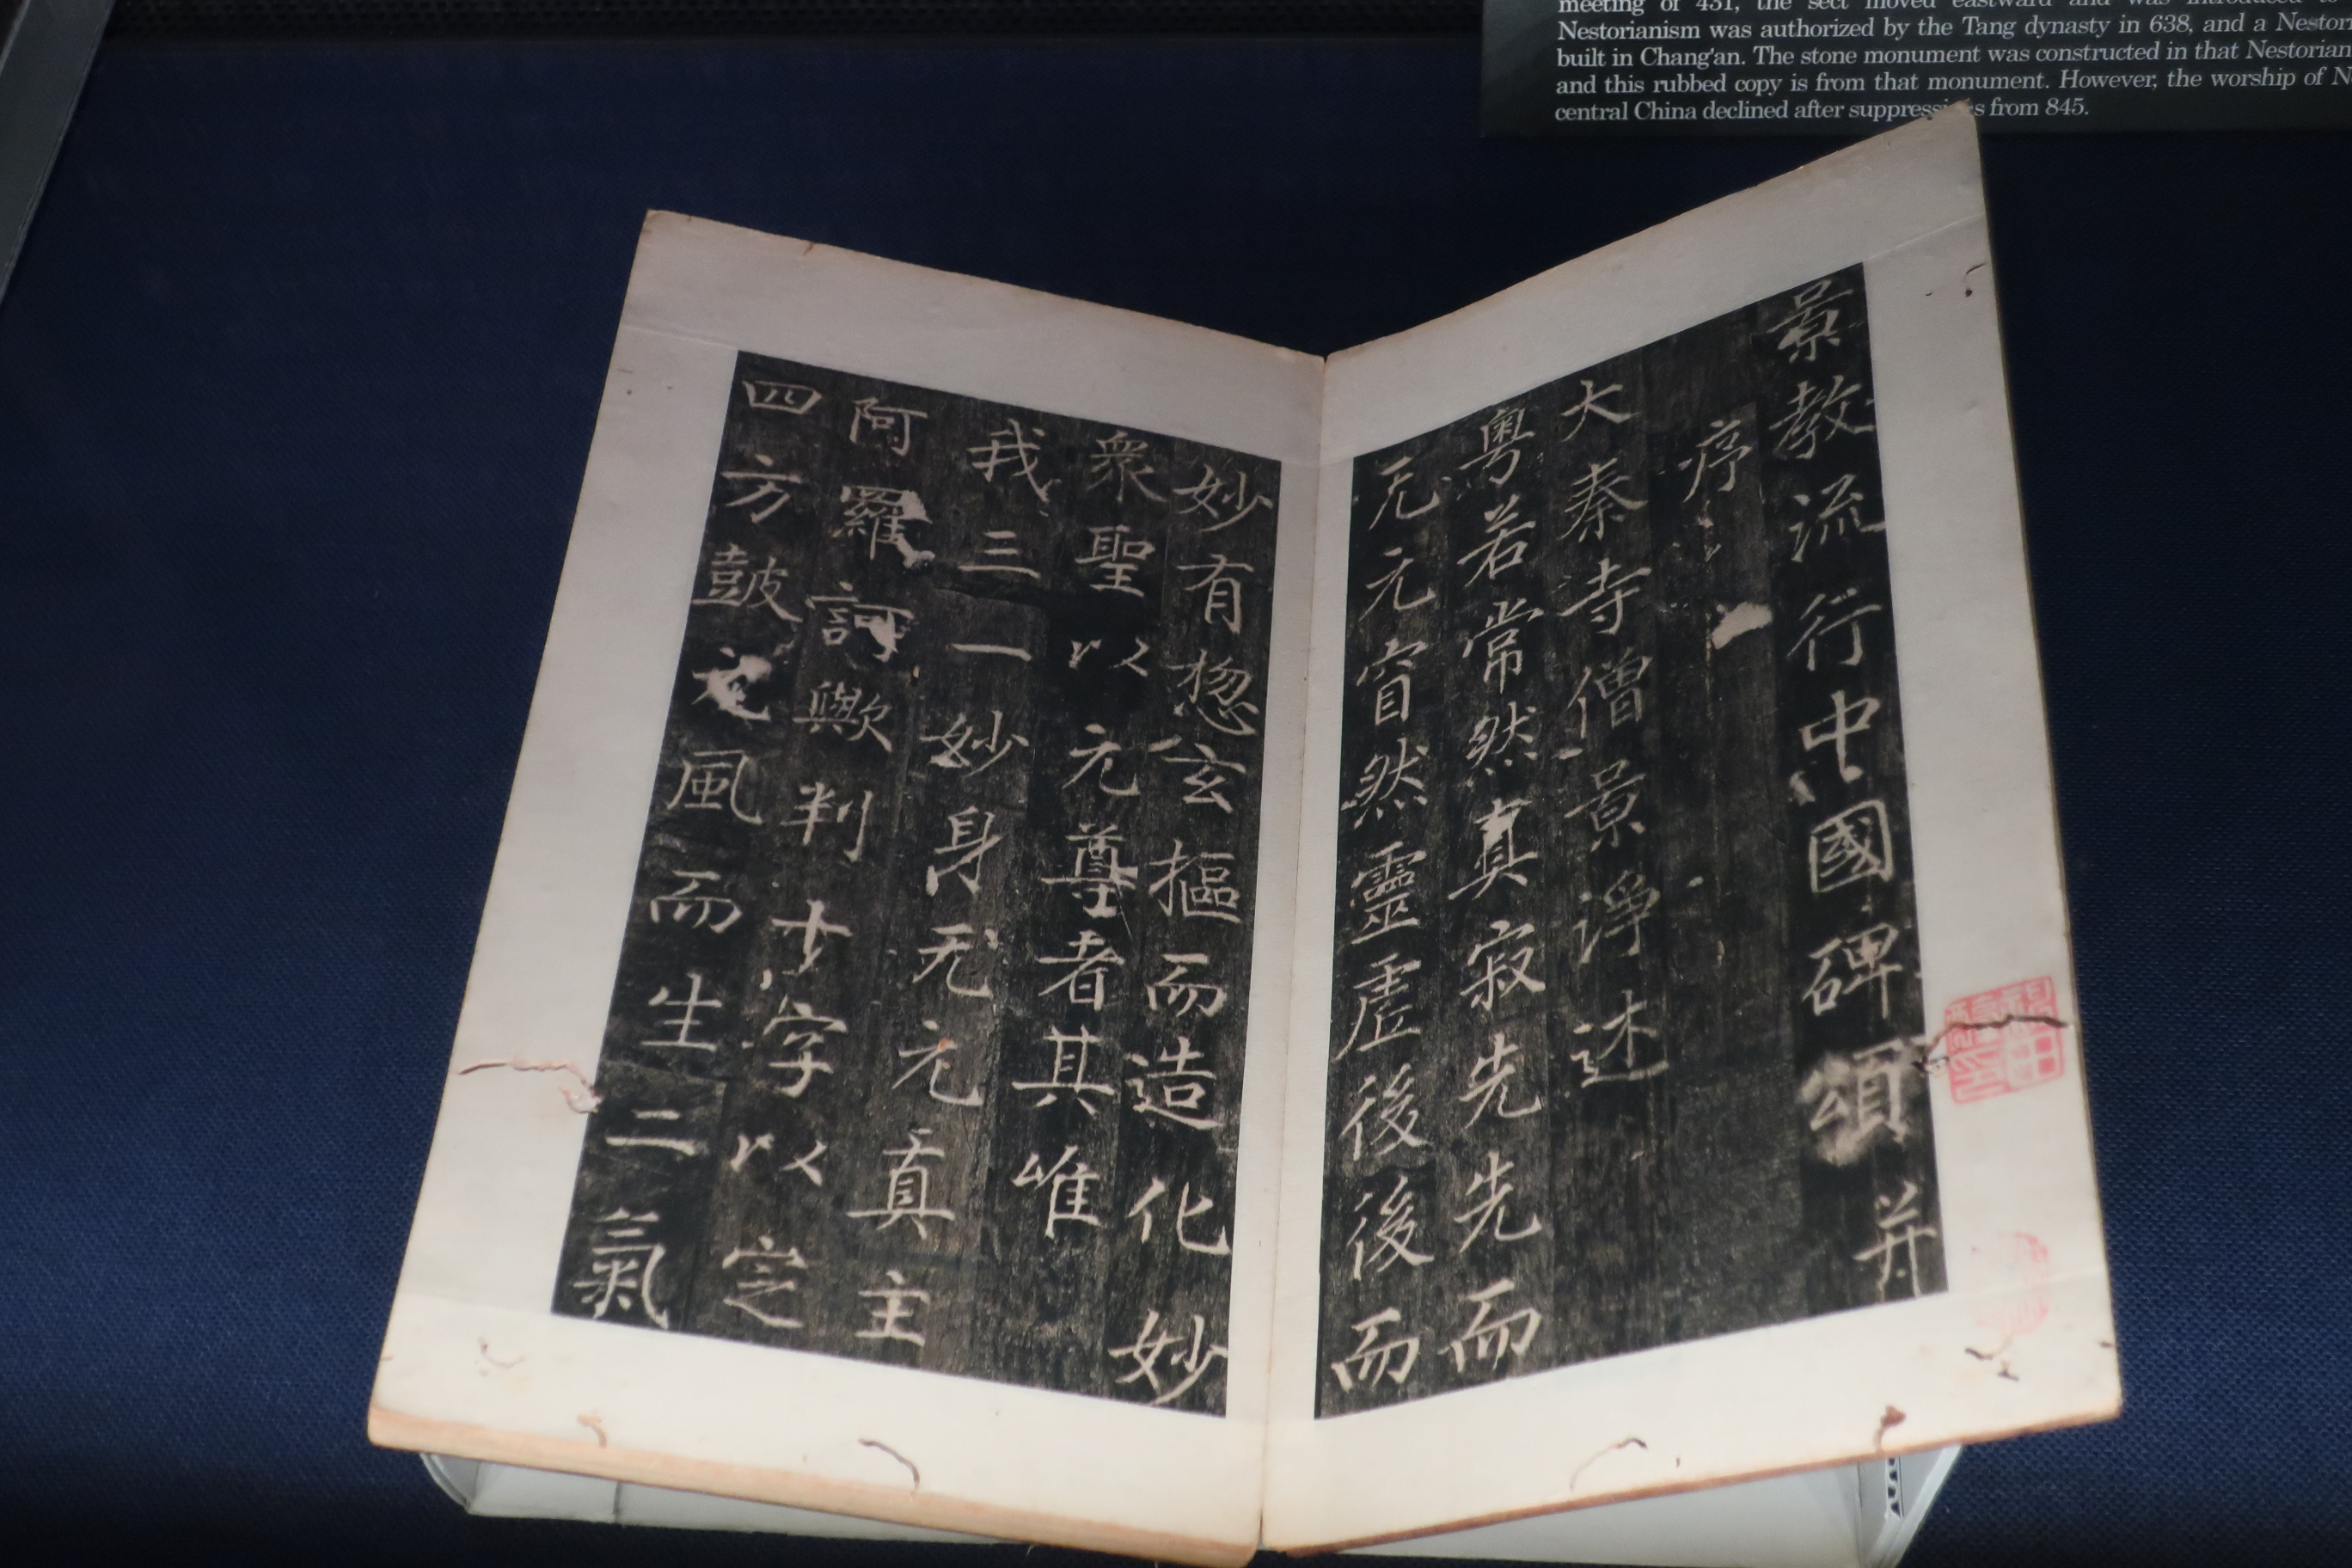 meeting of 431, the sect moved eastward and was introduced
Nestorianism was authorized by the Tang dynasty in 638, and a Nestori
built in Chang'an. The stone monument was constructed in that Nestorian
and this rubbed copy is from that monument. However, the worship of N
central China declined after suppressi s from 845.
景教流行中國碑頌并
序
大秦寺僧景淨述
粵若常然真寂先先而
无元窅然靈虛後後而
妙有惣玄摳而造化妙
衆聖以元尊者其唯
我三一妙身无元真主
阿羅訶歟判十字以定
四方鼓元風而生二氣